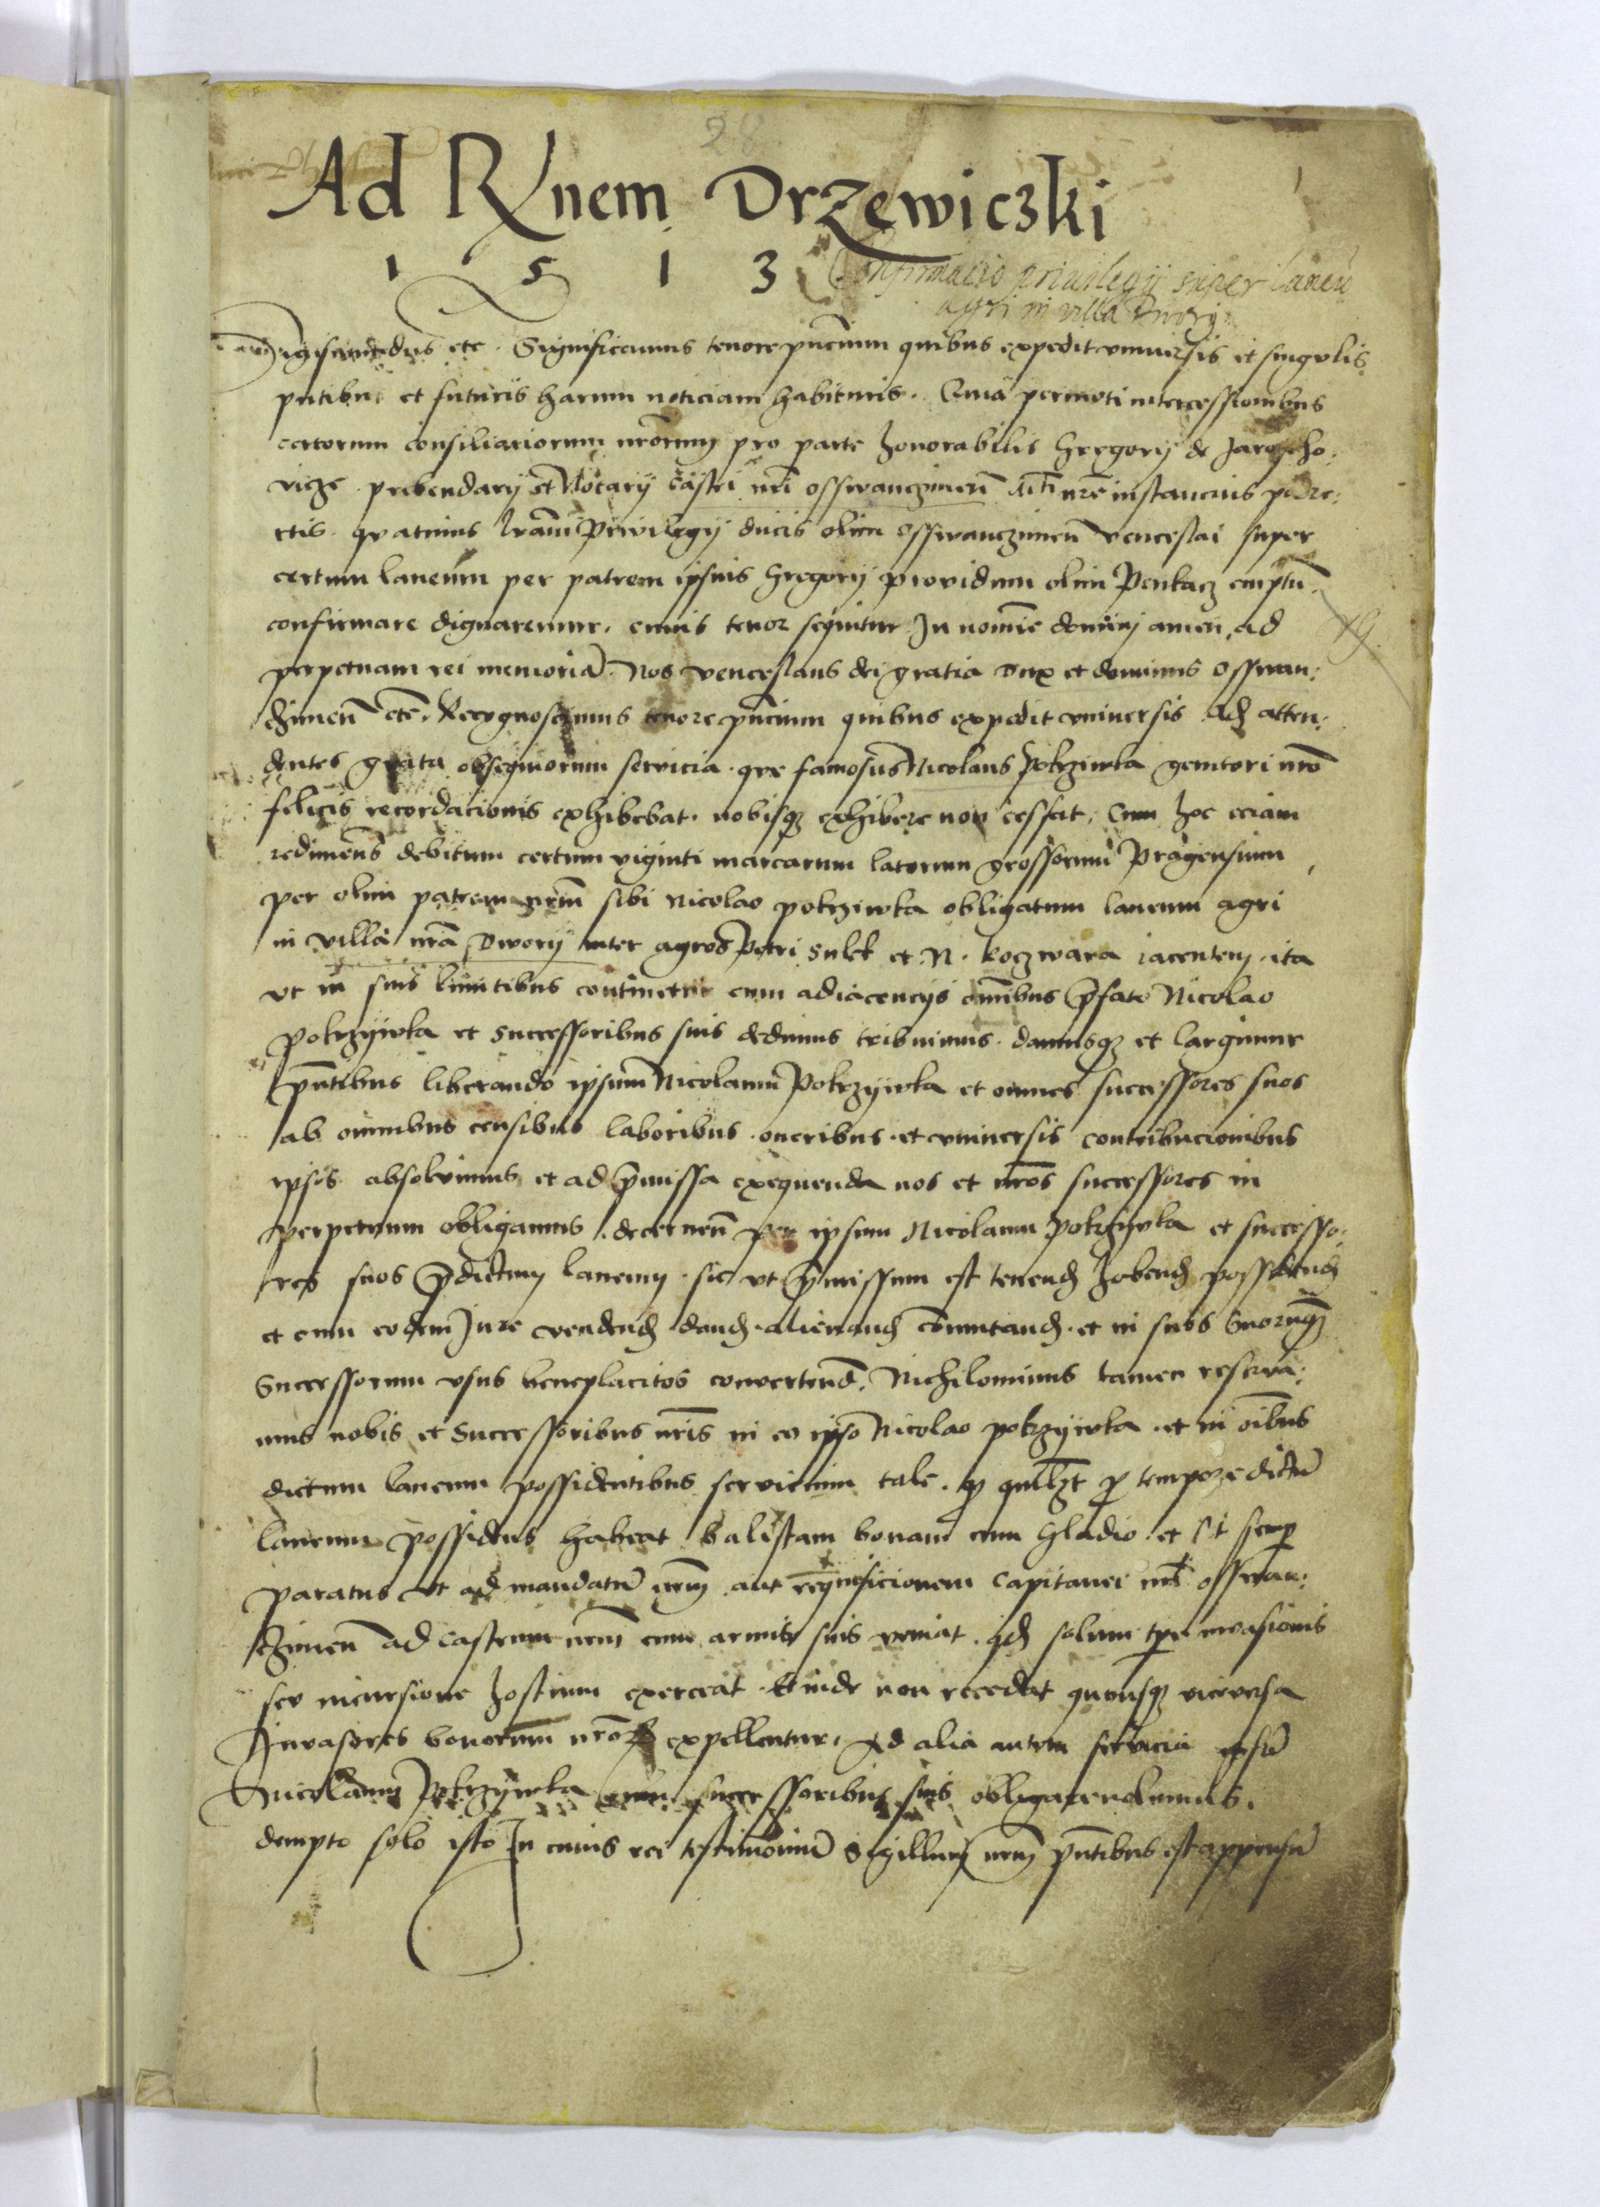 28
Ad Rnem Drzewiczki
1 5 1 3
Confirmacio privilegij super laneu
agri in villa Dwory
Sigismundus etc. Significamus tenore pntium quibus expedit vniversis et singulis
pntibus et futuris harum noticiam habituris. Quia permoti intercessionibus
certorum consiliariorum nrorum pro parte honorabilis Gregorij de Jaroscho:
vicze prebendarij et Notarij castri nri osswanczimen instancius porre:
ctis. quatinus lram privilegij ducis olim Osswanczimen venceslai super
certum laneum per patrem ipsius Gregorij providum olim Penkacz emptu
confirmare dignaremur. cuius tenor sequitur In nomine domini amen ad
perpetuam rei memoria. Nos venceslaus dei gratia Dux et dominus Osswan:
czimen etc. Recognoscimus tenore pntium quibus expedit vniversis. atten:
dentes grata obsequiorum servicia que famosus Nicolaus pokrziwka genitori nro
felicis recordacionis exhibebat. nobisq exhibere non cessat, Cum hoc eciam
redimens debitum certum viginti marcarum latorum grossorum pragensium
per olim patrem nrm sibi Nicolao pokrziwka obligatum laneum agri
in villa nra Dworij inter agros Petri Sulek et N. koczwara iacentem. ita
vt in suis limitibus continetur cum adiacencijs omnibus pfato Nicolao
pokrzijwka et successoribus suis dedimus tribuimus. damusq et largimur
pntibus liberando ipsum Nicolaum Pokrzijwka et omnes successores suos
ab omnibus censibus laboribus. oneribus. et vniversis contribucionibus
ipsos absolvimus et ad pmissa exequenda nos et nros successores in
perpetuum obligamus. decernen per ipsum Nicolaum pokrzijwka et successo:
res suos pdictum laneum. sic vt pmissum est tenend habend possidend
et cum eodem Jure vendend dand. alienand comutand. et in suos Suorumq
Successorum vsus beneplacitos convertend. Nichilominus tamen reserva:
mus nobis et Successoribus nris in eo ipso Nicolao pokrzijwka. et in oibus
dictum laneum possidentibus servicium tale. q quilibet p tempore dictu
laneum possidens habeat balistam bonam cum Gladio. et sit semp
paratus vt ad mandatu nrm aut requisicionem Capitanei nri osswan:
czimen ad castrum nrm cum armis suis veniat. qd solum tpe invasionis
seu incursione hostium exerceat. Et inde non recedat quousq viceversa
Invasores bonorum nror expellentur. Ad alia autem servicia ipsu
Nicolaum Pokrzijwka cum successoribus suis obligare nolumus.
dempto solo isto In cuius rei testimoniu Sigillum nrm pntibus est appensu